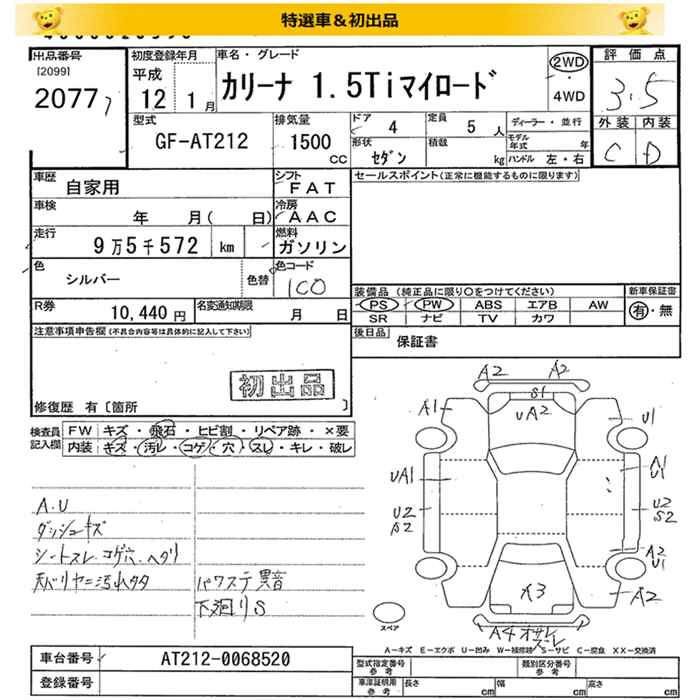 特選車＆初出品
出品番号
[2099]
2077
初度登録年月
平成
12 1月
車名・グレード
カリーナ 1.5Tiマイロード
2WD
・
4WD
評価点
3.5
外装 内装
C D
型式
GF-AT212
排気量
1500
cc
ドア 4
定員 5人
形状 セダン
積載 kg
ディーラー・並行
モデル年式 年
ハンドル 左・右
車歴
自家用
シフト
FAT
車検
年 月( 日)
冷房
AAC
走行
9万5千572 km
燃料
ガソリン
色
シルバー
色替
色コード
1C0
R券
10,440円
名変通知期限
月 日
セールスポイント(正常に機能するものに限ります)
装備品 (純正品に限り○をつけてください)
新車保証書
PS PW ABS エアB AW
SR ナビ TV カワ
有・無
後日品
保証書
注意事項申告欄(不具合内容等は具体的に記入して下さい)
初出品
修復歴 有〔箇所 〕
検査員記入欄
FW キズ・飛石・ヒビ割・リペア跡・×要
内装 キズ・汚レ・コゲ・穴・スレ・キレ・破レ
A.U
ダッシュキズ
シートスレ.コゲ穴.ヘタリ
天バリヤニ汚れタタ
パワステ異音
下廻りS
A2 A2
S1
A1 UA2 U1
UA1
A1
U1
U2
A2
U2
S2
A2
U1
A3 A2
A4
スペア
A=キズ E=エクボ U=凹み W=補修跡 S=サビ C=腐食 XX=交換済
車台番号
AT212-0068520
登録番号
型式指定番号
参考
類別区分番号
参考
車庫証明用
参考
長さ cm
幅 cm
高さ cm